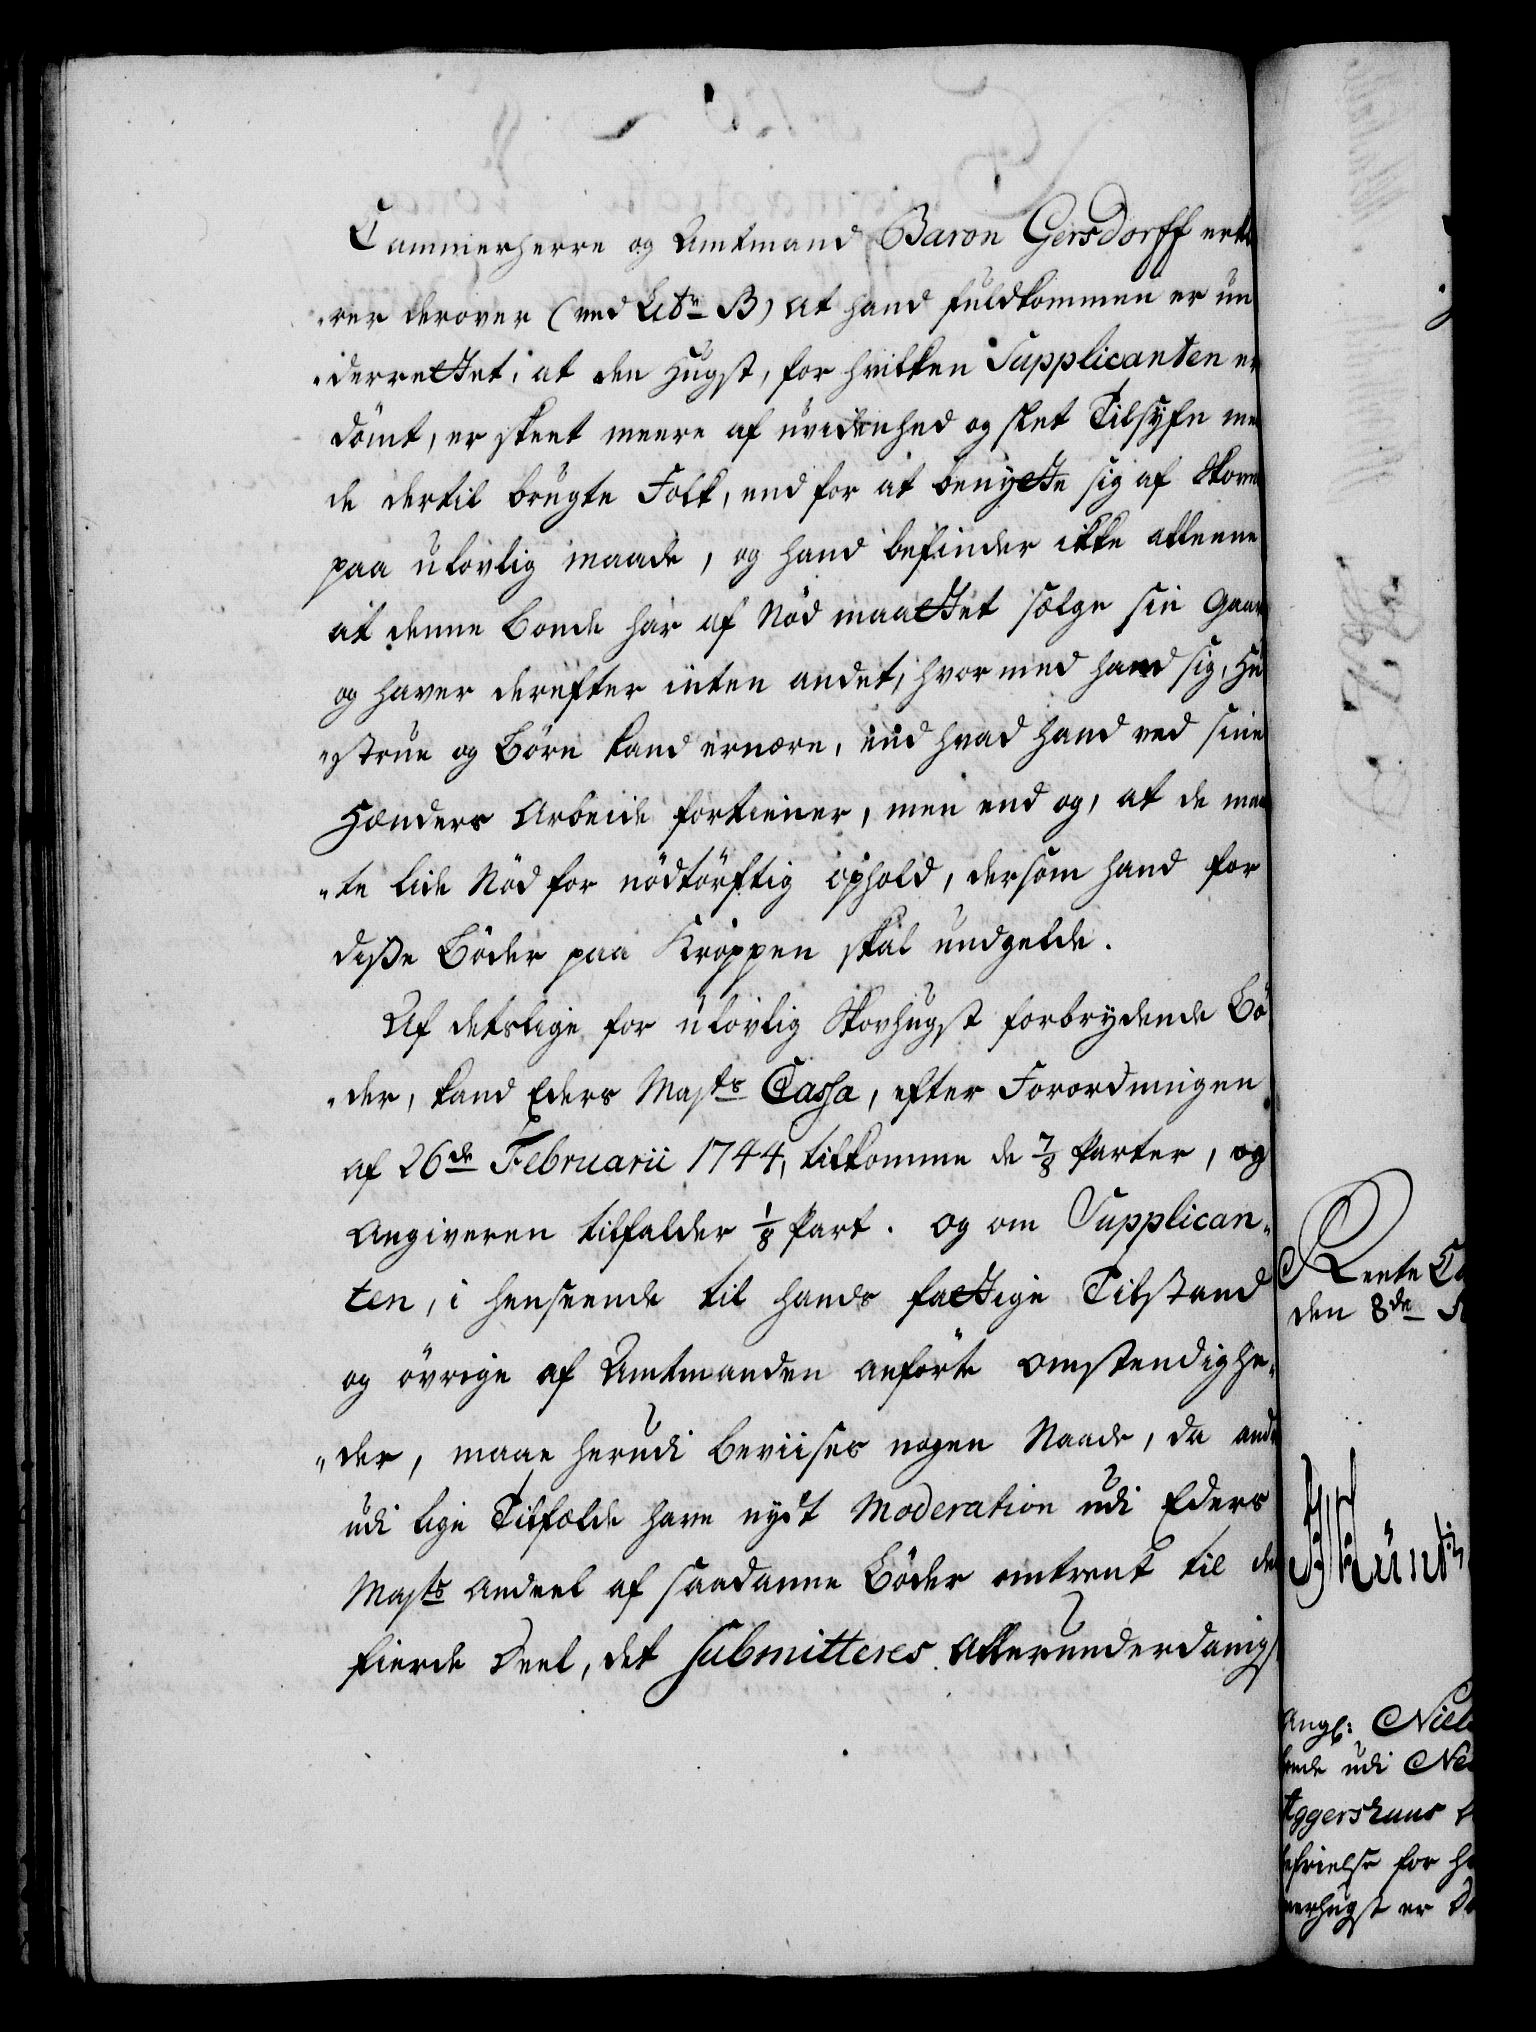 Cammerherre og Amtmand Baron Gersdorff erklæ
„rer derover (ved Litr B) at hand fuldkommen er un
„derrettet, at den Hugst, for hvilken Supplicanten er
dömt, er skeet meere af uvidenhed og slet Tilsyfn med
de dertil brugte Folk, end for at benytte sig af Skoven
paa ulovlig maade, og hand befinder ikke alleene
at denne Bonde har af Nöd maattet sælge sin Gaard
og haver derefter inten andet, hvormed hand sig, Hu
„strue og Börn kand ernære, end hvad hand ved sine
Hænders Arbeide fortiener, men end og, at de maa
„te lide Nöd for nödtörftig ophold, dersom hand for
diße Böder paa Kroppen skal undgelde.
Af detslige for ulovlig Skovhugst forbrydende Bö
„der, kand Eders Majts Cassa, efter Forordningen
af 26de Februarii 1744, tilkomme de 7/8 Parter, og
Angiveren tilfalder 1/8 Part. Og om Supplican„
ten, i henseende til hands fattige Tilstand
og övrige af Amtmanden anförte omstendighe„
„der, maae herudi beviises nogen Naade, da andre
udi lige Tilfælde have nydt Moderation udi Eders
Majts Andeel af saadanne Böder omtrent til de
fierde Deel, det submitteres allerunderdanigst
Rente Ca
den 8de
Angl: Niels
bonde udi Ne
Aggershuus
befrielse for
verhugst er